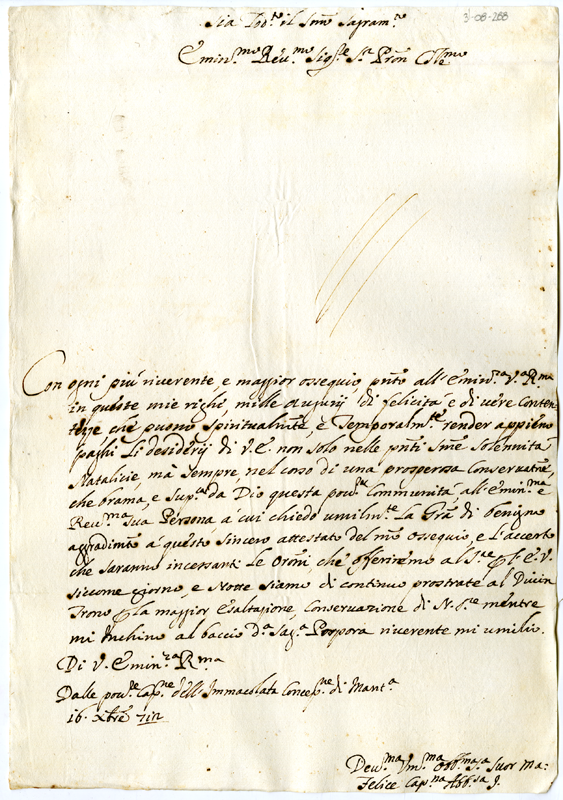 3-08-288
Sia Lod.to il S.mo Sagram.to
Emin.mo Rev.mo Sig.re S.r Pron Col.mo
Con ogni più riverente, e maggior ossequio, p.nto all'Emin.za V.a R.ma
in queste mie righe, mille augurij di felicità e di vere Conten
tezze, che puono Spiritualm.te, e Temporalm.te render appieno
paghi Li desiderij di V.E. non Solo nelle p.nti S.me Solennità
Natalicie, mà Sempre, nel corso di una prosperosa Conservat.ne,
che brama, e Sup.ca da Dio questa pov.ra Communità all'Emin.ma e
Rev.ma Sua Persona à cui chiedo umilm.te La Gra di benigno
aggradim.to à questo Sincero attestato del mio ossequio, e L'accerto
che Saranno incessanti Le Oroni che offeriremo al S.re V.E.
siccome giorno, e Notte Siamo di continuo prostrate al Divin
Trono La maggior Esaltazione, Conservazione di N.S.re mentre
mi Inchino al baccio d.a Sag.a Porpora riverente mi umilio.
Di V. Emin.za R.ma
Dalle pov.e Cap.ne dell'Immacolata Concep.ne di Mant.a
16. Xbre 1712
Dev.ma Um.ma Obb.ma Suor Ma:
Felice Cap.na Abb.sa I.